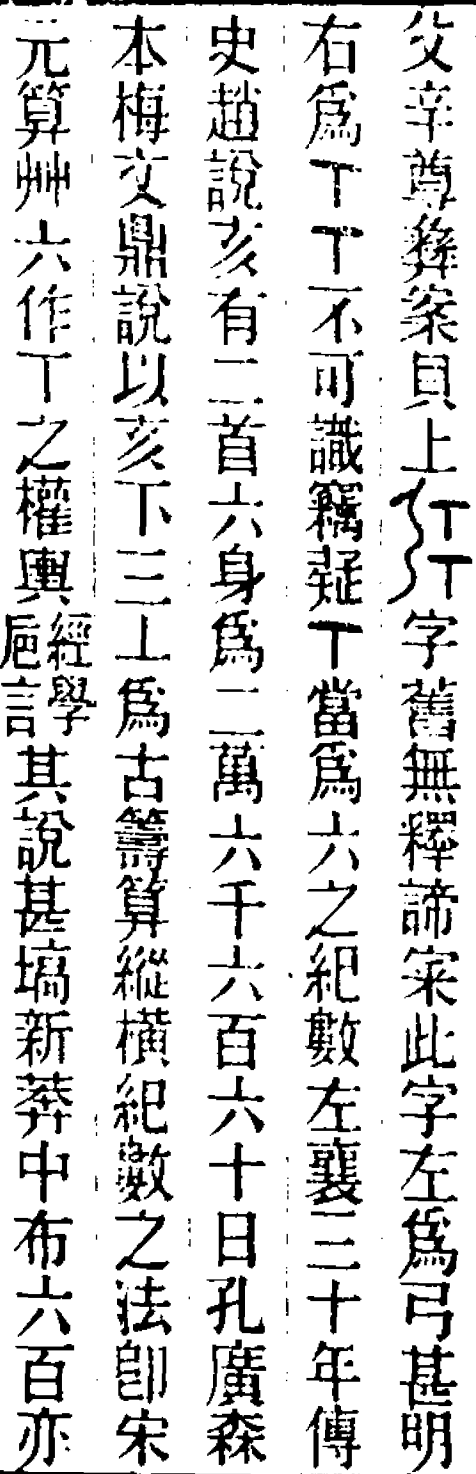 父辛尊彝案貝上字舊無釋諦寀此字左爲弓甚明
右爲丅丅不可識竊疑丅當爲六之紀數左襄三十年傳
史趙說亥有二首六身爲二萬六千六百六十日孔廣森
本梅文鼎說以亥下三丄爲古籌算縱橫紀數之法卽宋
元算艸六作丅之權輿經學巵言其說甚塙新莽中布六百亦